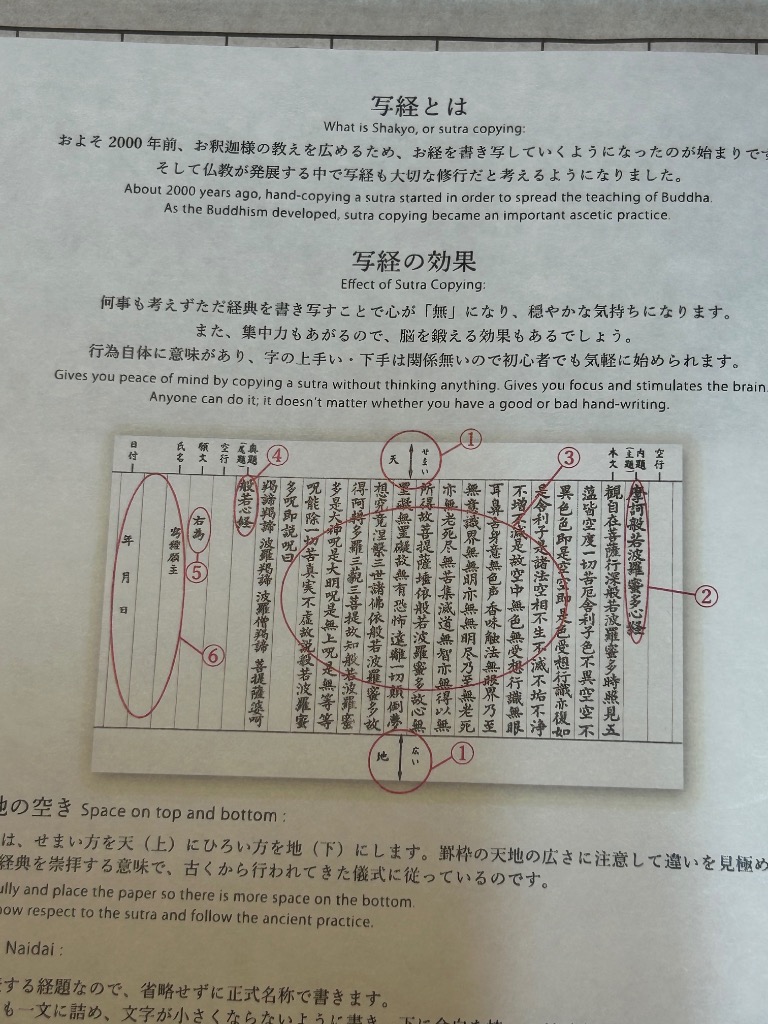 写経とは
What is Shakyo, or sutra copying:
およそ 2000 年前、お釈迦様の教えを広めるため、お経を書き写していくようになったのが始まりです
そして仏教が発展する中で写経も大切な修行だと考えるようになりました。
About 2000 years ago, hand-copying a sutra started in order to spread the teaching of Buddha.
As the Buddhism developed, sutra copying became an important ascetic practice.
写経の効果
Effect of Sutra Copying:
何事も考えずただ経典を書き写すことで心が「無」になり、穏やかな気持ちになります。
また、集中力もあがるので、脳を鍛える効果もあるでしょう。
行為自体に意味があり、字の上手い・下手は関係無いので初心者でも気軽に始められます。
Gives you peace of mind by copying a sutra without thinking anything. Gives you focus and stimulates the brain.
Anyone can do it; it doesn't matter whether you have a good or bad hand-writing.
空行
内題
(主題)
本文
①
せまい
天
③
④
奥題
(尾題)
空行
願文
氏名
日付
摩訶般若波羅蜜多心経
②
観自在菩薩行深般若波羅蜜多時照見五
蘊皆空度一切苦厄舎利子色不異空空不
異色色即是空空即是色受想行識亦復如
是舎利子是諸法空相不生不滅不垢不浄
不増不減是故空中無色無受想行識無眼
耳鼻舌身意無色声香味触法無眼界乃至
無意識界無無明亦無無明尽乃至無老死
亦無老死尽無苦集滅道無智亦無得以無
所得故菩提薩埵依般若波羅蜜多故心無
罣礙無罣礙故無有恐怖遠離一切顛倒夢
想究竟涅槃三世諸佛依般若波羅蜜多故
得阿耨多羅三藐三菩提故知般若波羅蜜
多是大神呪是大明呪是無上呪是無等等
呪能除一切苦真実不虚故説般若波羅蜜
多呪即説呪曰
羯諦羯諦 波羅羯諦 波羅僧羯諦 菩提薩婆呵
般若心経
右為
⑤
写経願主
年 月 日
⑥
広い
地
①
地の空き Space on top and bottom :
は、せまい方を天（上）にひろい方を地（下）にします。罫枠の天地の広さに注意して違いを見極め
経典を崇拝する意味で、古くから行われてきた儀式に従っているのです。
ully and place the paper so there is more space on the bottom.
how respect to the sutra and follow the ancient practice.
Naidai :
する経題なので、省略せずに正式名称で書きます。
も一文に詰め、文字が小さくならないように書き、下に余白を